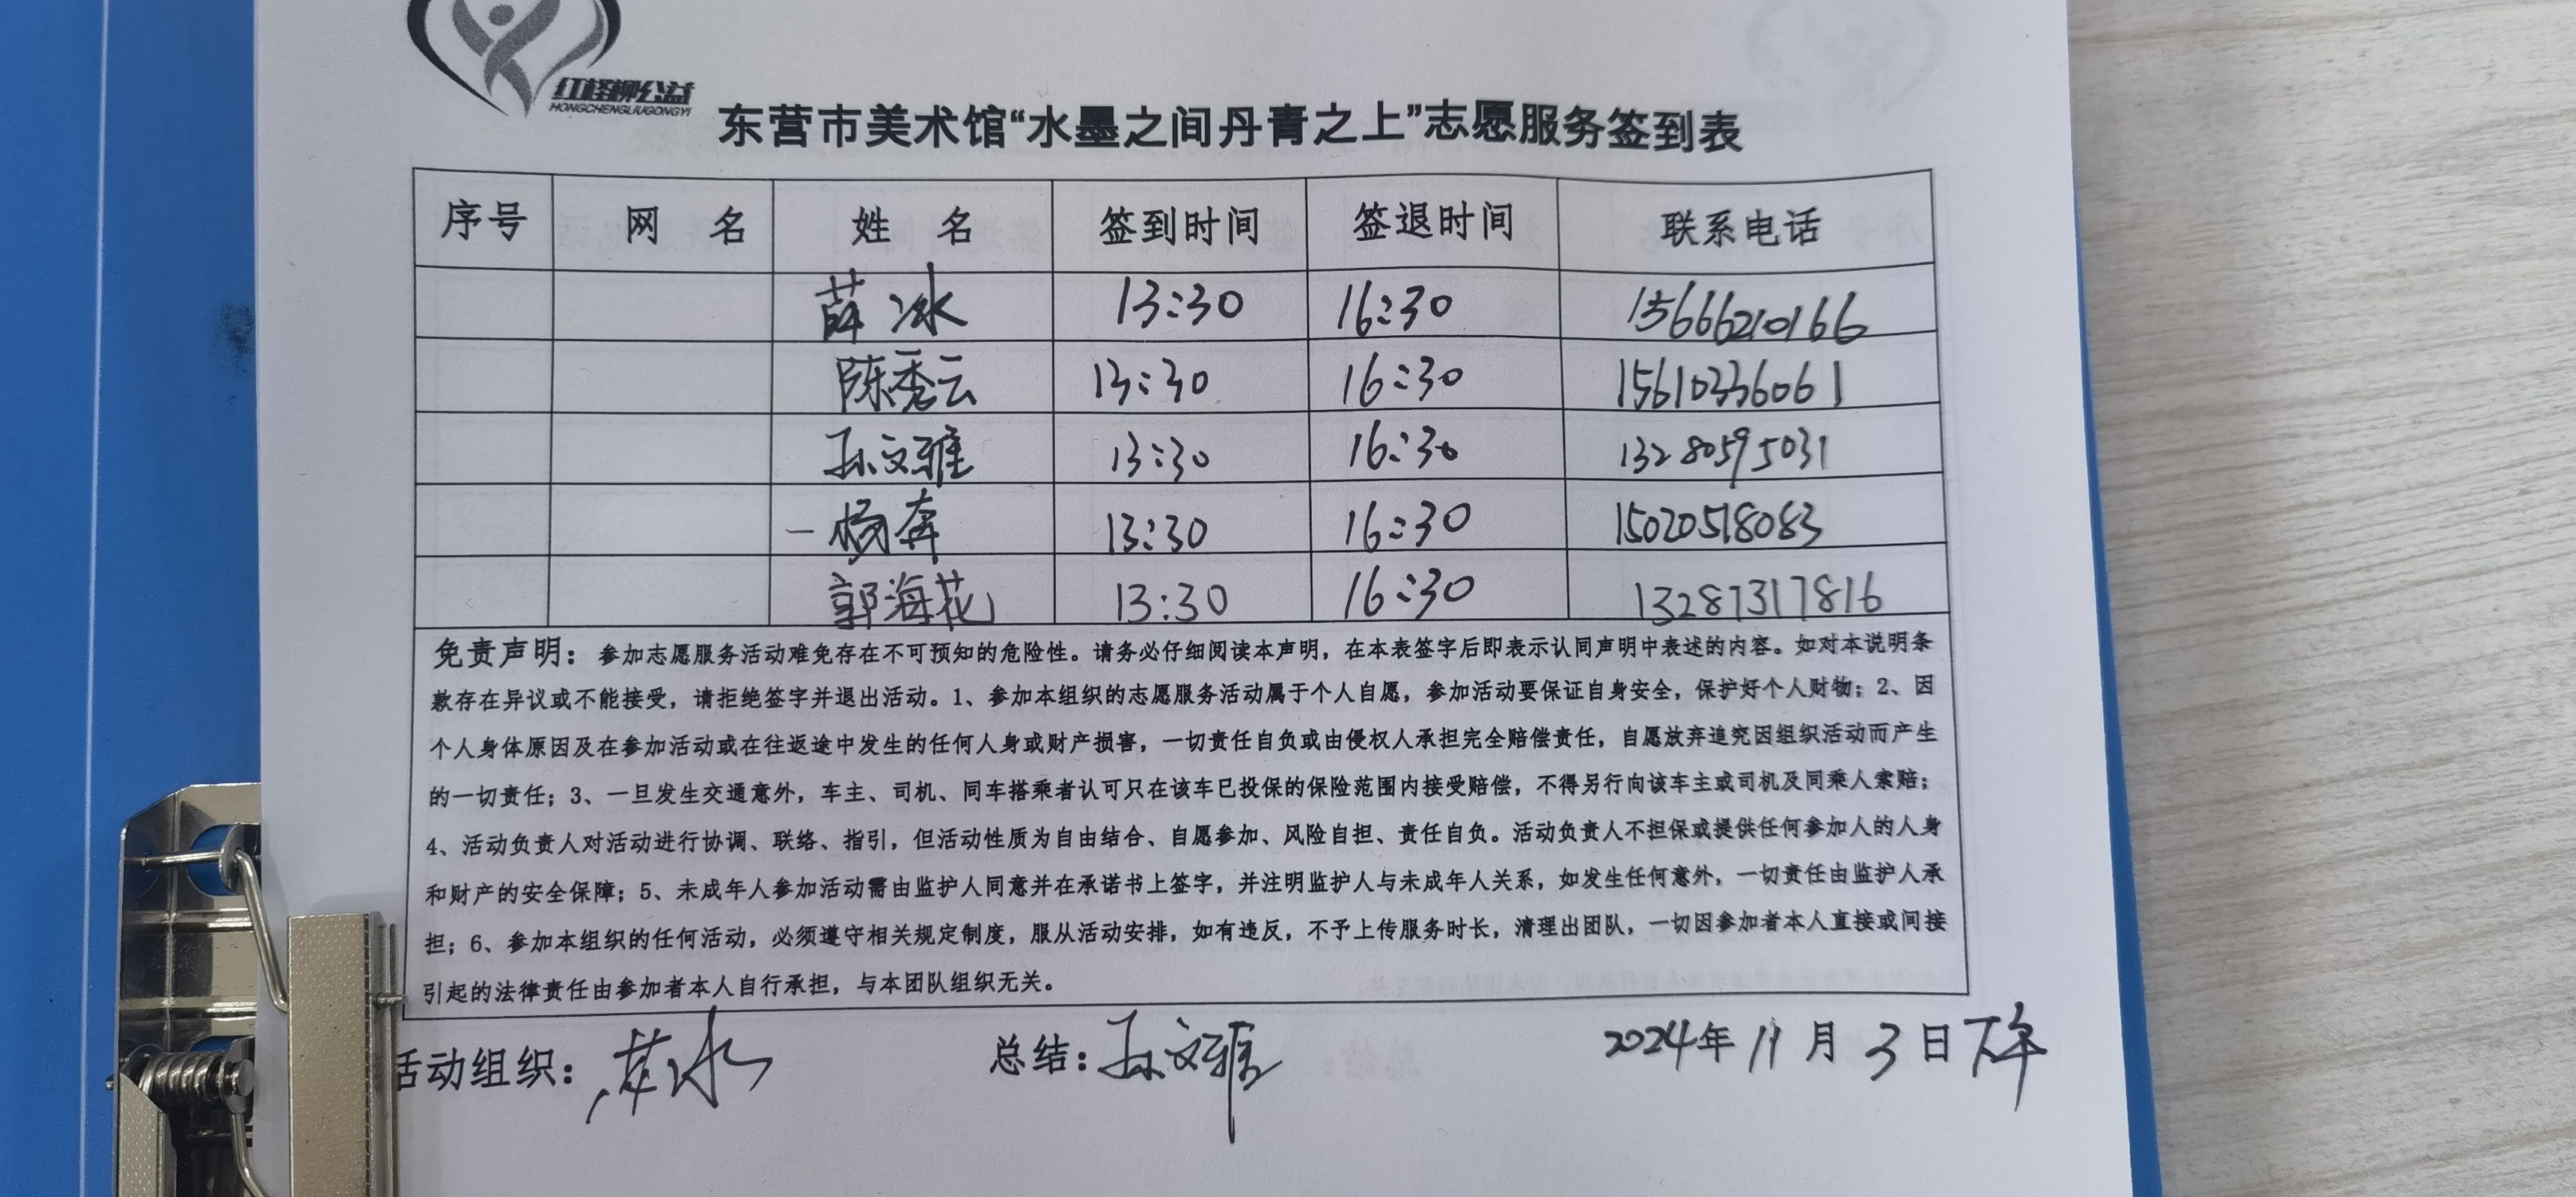 红柽柳公益
HONGCHENGLIUGONGYI
东营市美术馆“水墨之间丹青之上”志愿服务签到表
序号 网 名 姓 名 签到时间 签退时间 联系电话
薛冰 13:30 16:30 15666210166
陈秀云 13:30 16:30 15610336061
孙文雅 13:30 16:30 13280595031
杨奔 13:30 16:30 15020518083
郭海花 13:30 16:30 13287317816
免责声明：参加志愿服务活动难免存在不可预知的危险性。请务必仔细阅读本声明，在本表签字后即表示认同声明中表述的内容。如对本说明条
款存在异议或不能接受，请拒绝签字并退出活动。1、参加本组织的志愿服务活动属于个人自愿，参加活动要保证自身安全，保护好个人财物；2、因
个人身体原因及在参加活动或在往返途中发生的任何人身或财产损害，一切责任自负或由侵权人承担完全赔偿责任，自愿放弃追究因组织活动而产生
的一切责任；3、一旦发生交通意外，车主、司机、同车搭乘者认可只在该车已投保的保险范围内接受赔偿，不得另行向该车主或司机及同乘人索赔；
4、活动负责人对活动进行协调、联络、指引，但活动性质为自由结合、自愿参加、风险自担、责任自负。活动负责人不担保或提供任何参加人的人身
和财产的安全保障；5、未成年人参加活动需由监护人同意并在承诺书上签字，并注明监护人与未成年人关系，如发生任何意外，一切责任由监护人承
担；6、参加本组织的任何活动，必须遵守相关规定制度，服从活动安排，如有违反，不予上传服务时长，清理出团队，一切因参加者本人直接或间接
引起的法律责任由参加者本人自行承担，与本团队组织无关。
活动组织：薛冰 总结：孙文雅 2024年11月3日下午